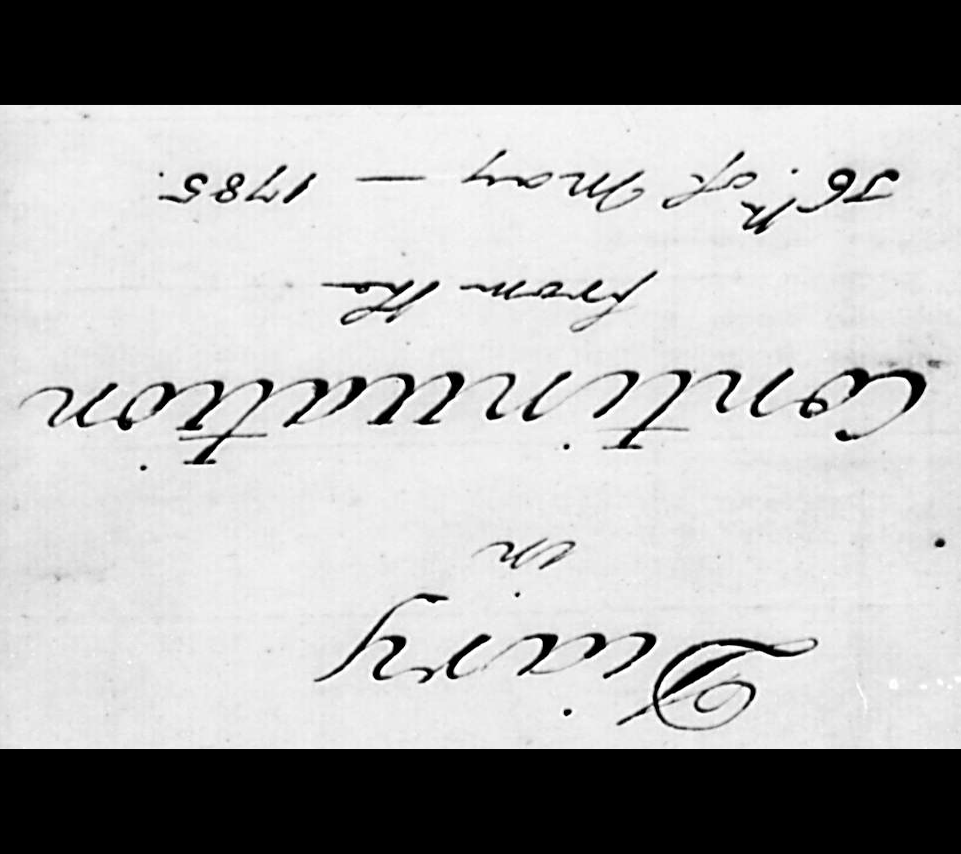 Diary
in
Continuation
from the
of May — 1785.